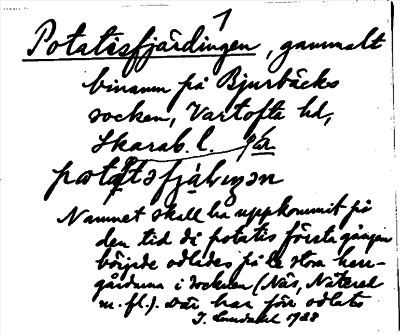 1
Potatisfjärdingen, gammalt
binamn på Bjurbäcks
socken, Vartofta hd,
Skarab. l.
Namnet skall ha uppkommit på
den tid då potatis första gången
började odlades på de stora herr-
gårdarna i socknen (Näs,
m. fl.). Där har förr odlats
J. Lundahl 1928